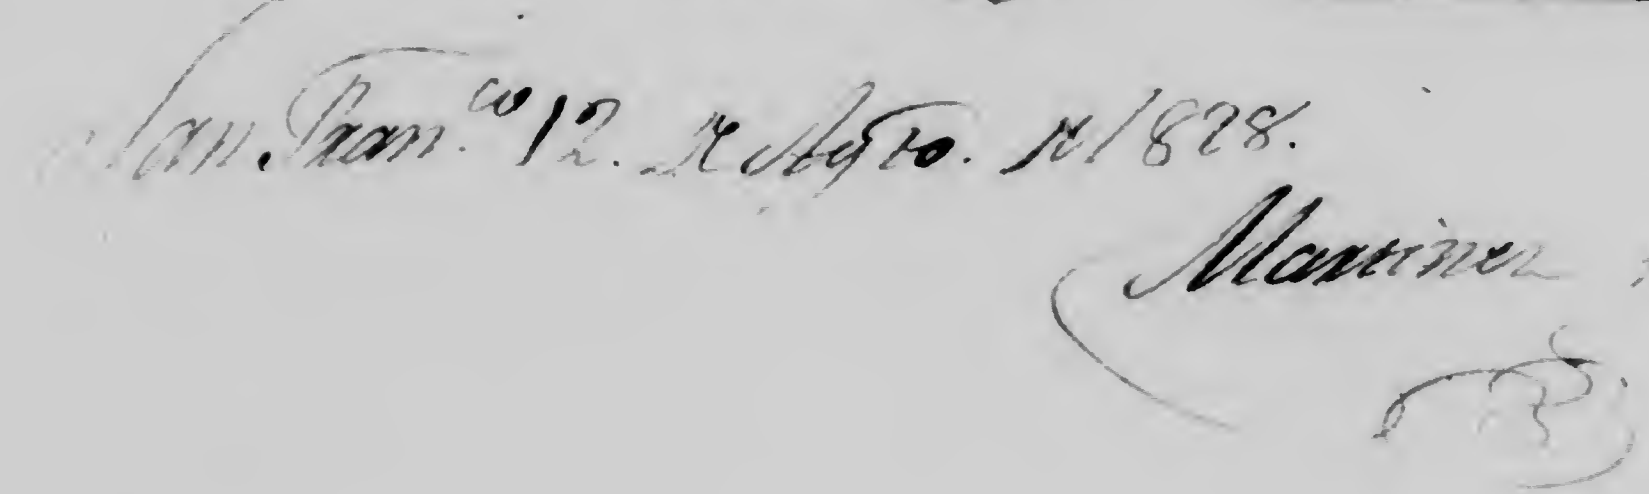 San Fran.co 12. de Agto. de 1828.
Martinez